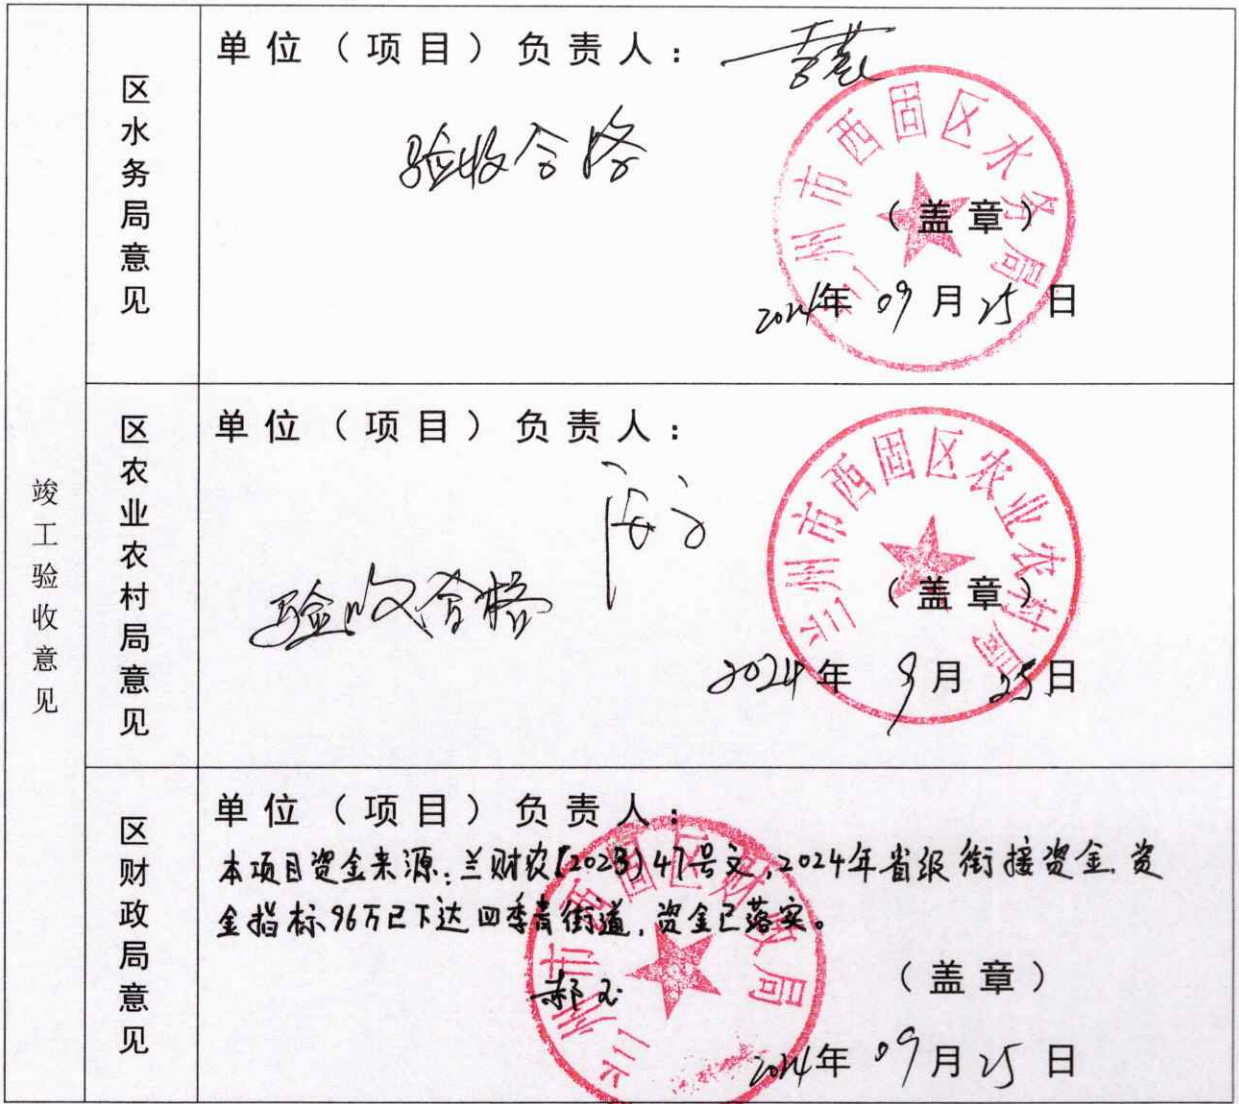 竣工验收意见
区水务局意见
单位（项目）负责人：
验收合格
兰州市西固区水务局
（盖章）
2024年 09月 25日
区农业农村局意见
单位（项目）负责人：
验收合格
兰州市西固区农业农村局
（盖章）
2024年 9月 25日
区财政局意见
单位（项目）负责人：
本项目资金来源：兰财农〔2023〕47号文，2024年省级衔接资金，资
金指标96万已下达四季青街道，资金已落实。
兰州市西固区财政局
（盖章）
2024年 09月 25日